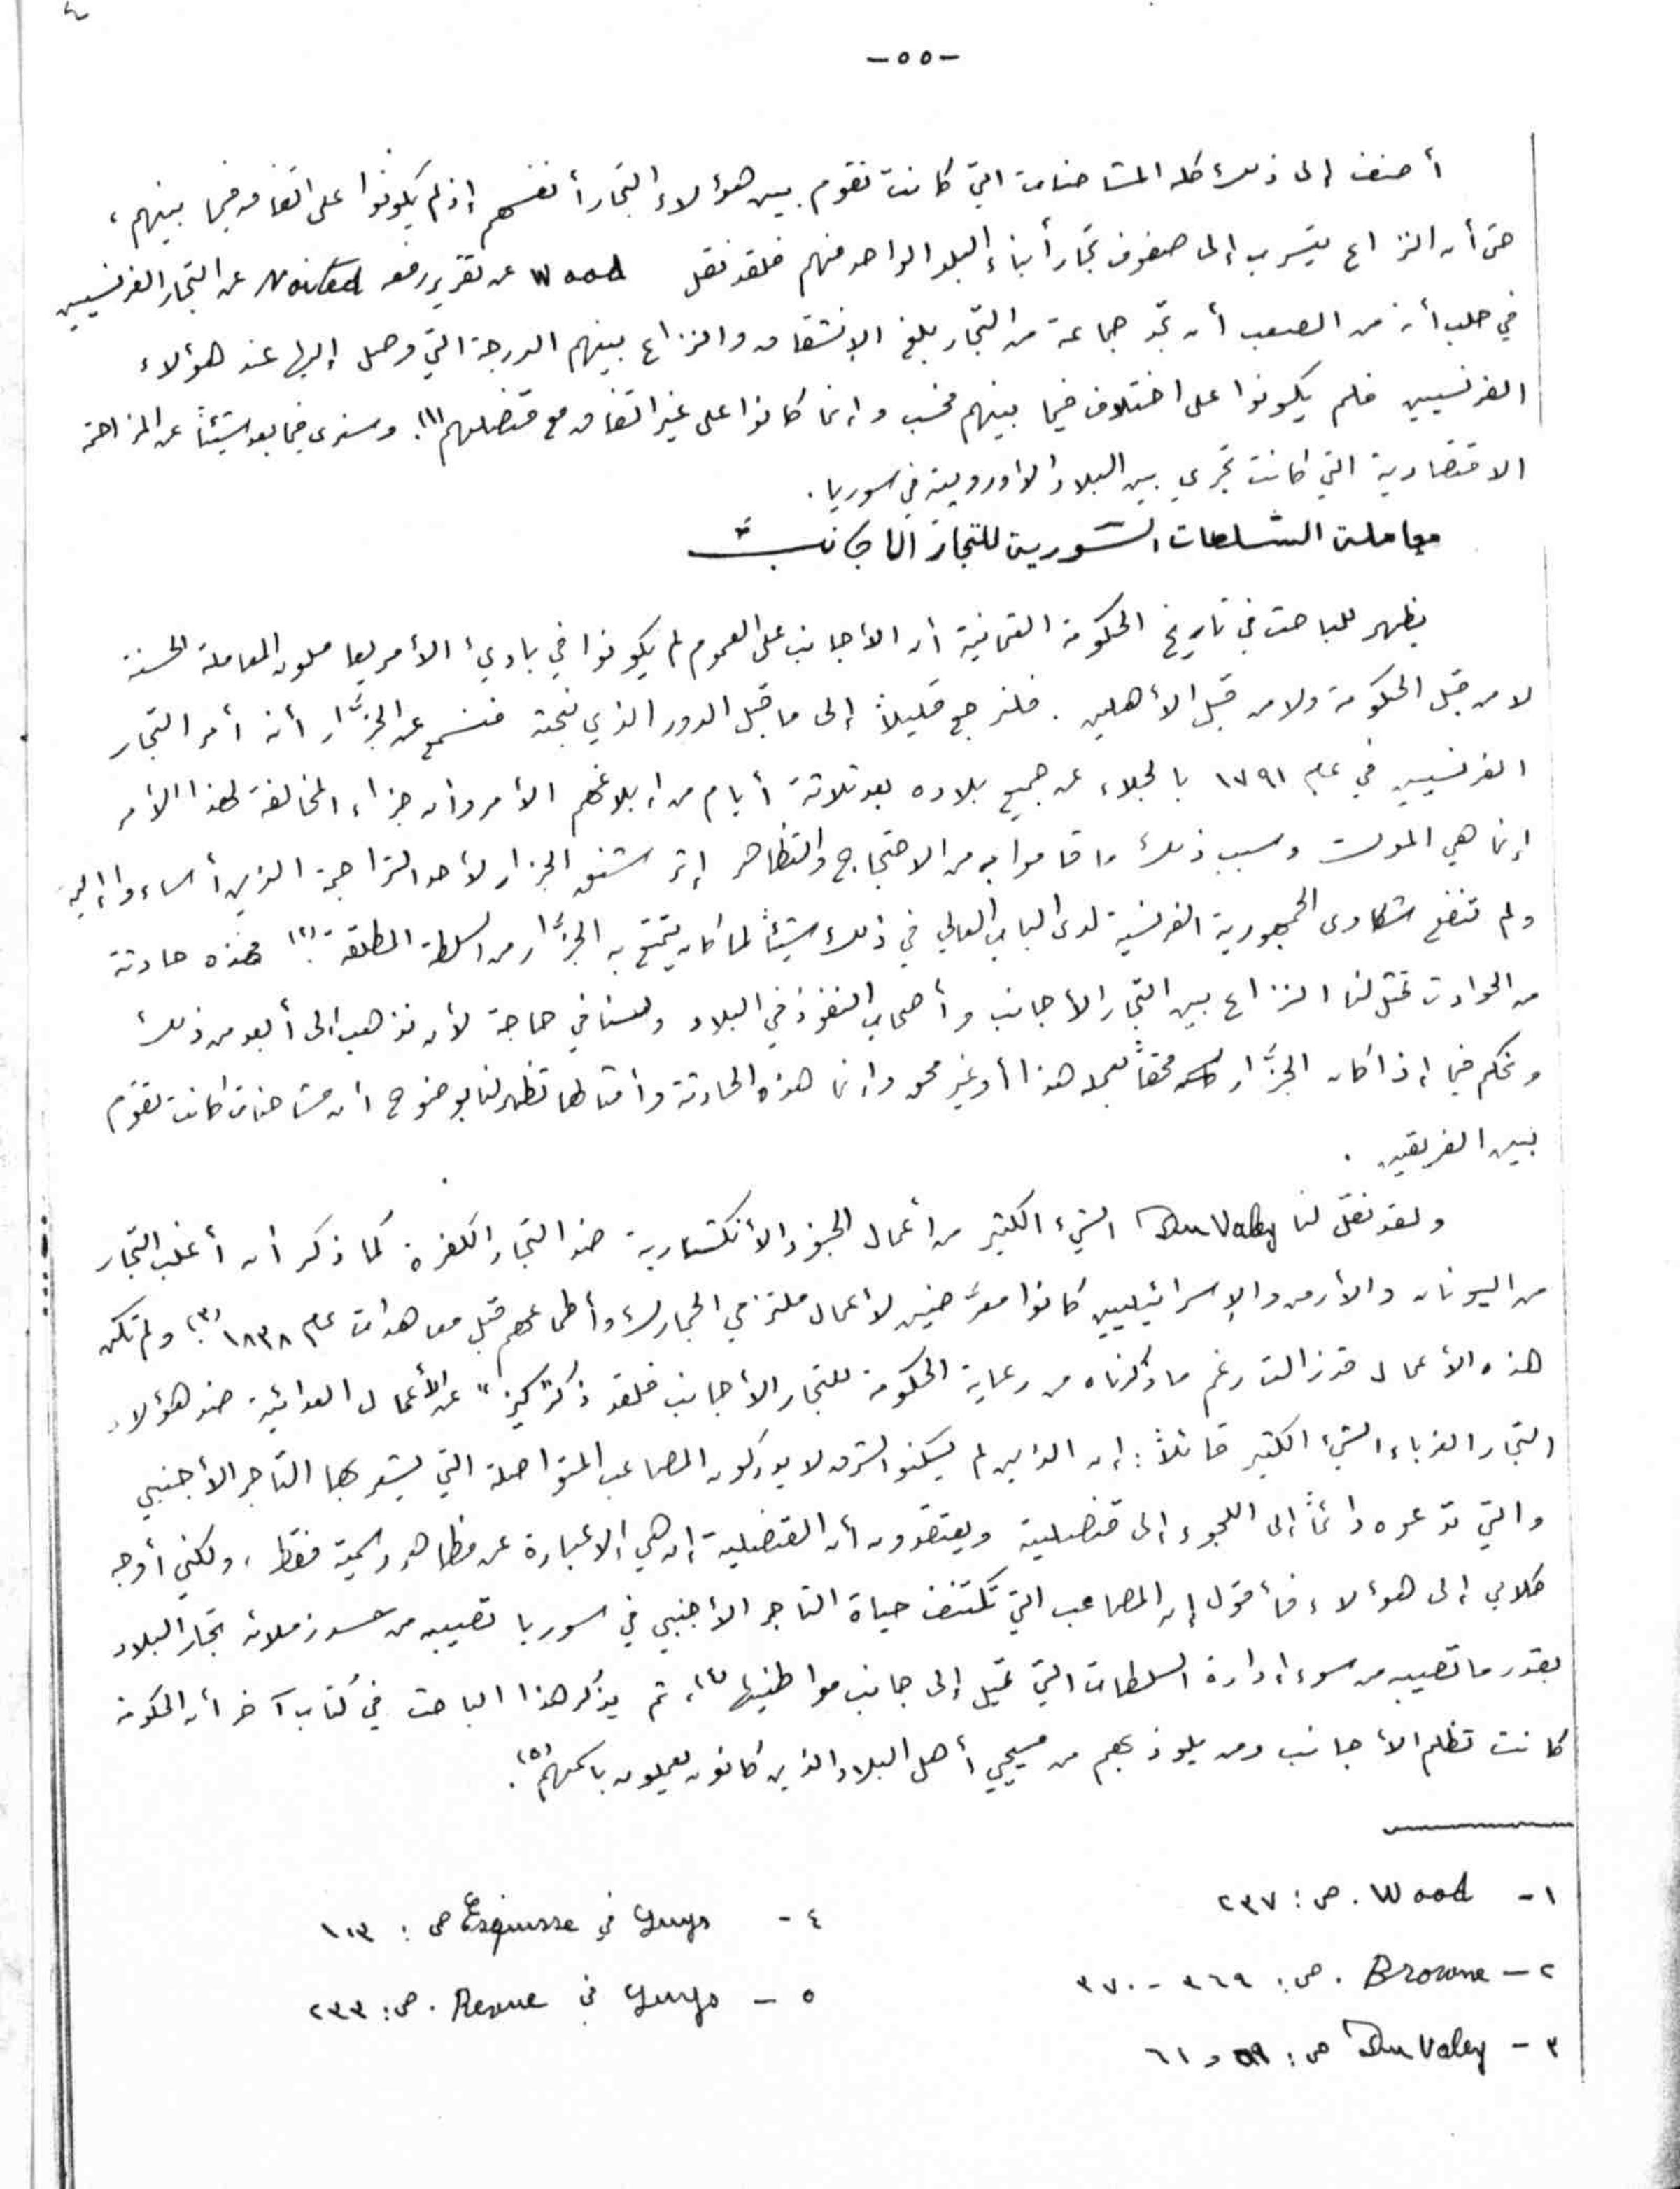 -٥٥-
أضف إلى ذلك كله المشاحنات التي كانت تقوم بين هؤلاء التجار أنفسهم إذ لم يكونوا على اتفاق فيما بينهم،
حتى أن النزاع يتسرب إلى صفوف تجار أبناء البلد الواحد منهم فلقد نقل Wood عن تقرير رفعه عن التجار الفرنسيين
في حلب أنه من الصعب أن تجد جماعة من التجار بلغ الإنشقاق والنزاع بينهم الدرجة التي وصل إليها عند هؤلاء
الفرنسيين فلم يكونوا على اختلاف فيما بينهم فحسب وإنما كانوا على غير اتفاق مع قنصلهم(١). وسنرى فيما بعد شيئاً عن المزاحمة
الاقتصادية التي كانت تجري بين البلاد الاوروبية في سوريا.
معاملة السلطات السورية للتجار الأجانب
يظهر للباحث في تاريخ الحكومة العثمانية أن الأجانب على العموم لم يكونوا في بادئ الأمر يعاملون المعاملة الحسنة
لا من قبل الحكومة ولا من قبل الأهلين. فلنرجع قليلاً إلى ما قبل الدور الذي نبحثه فنسمع عن الجزَّار أنه أمر التجار
الفرنسيين في عام ١٧٩١ بالجلاء عن جميع بلاده بعد ثلاثة أيام من إبلاغهم الأمر وأن جزاء المخالفة لهذا الأمر
إنما هي الموت وسبب ذلك ما قاموا به من الاحتجاج والتظاهر إثر شنق الجزار لأحد التراجمة الذين أساءوا إليه
ولم تنفع شكاوى الجمهورية الفرنسية لدى الباب العالي في ذلك شيئاً لما كان يتمتع به الجزَّار من السلطة المطلقة(٢). فهذه حادثة
من الحوادث تمثل لنا النزاع بين التجار الأجانب وأصحاب النفوذ في البلاد ولسنا في حاجة لأن نذهب إلى أبعد من ذلك
ونحكم فيما إذا كان الجزَّار محقاً بعمله هذا أو غير محق وإنما هذه الحادثة وأمثالها تظهر لنا بوضوح أن مشاحنات كانت تقوم
بين الفريقين.
ولقد نقل لنا Du Valey الشيء الكثير من أعمال الجنود الأنكشارية ضد التجار الكفرة كما ذكر أن أغلب التجار
من اليونان والأرمن والإسرائيليين كانوا معرَّضين لأعمال ملتزمي الجمارك وأطماعهم قبل معاهدات عام ١٨٣٨(٣). ولم تكن
هذه الأعمال قد زالت رغم ما ذكرناه من رعاية الحكومة للتجار الأجانب فلقد ذكر "كيز" عن الأعمال العدائية ضد هؤلاء
التجار الغرباء الشيء الكثير قائلاً: إن الذين لم يسكنوا الشرق لا يدركون المصاعب المتواصلة التي يشعر بها التاجر الأجنبي
والتي تدعوه دائماً إلى اللجوء إلى قنصلية ويعتقدون أن القنصلية إن هي إلا عبارة عن مظاهر رسمية فقط، ولكني أوجه
كلامي إلى هؤلاء فأقول إن المصاعب التي تكتنف حياة التاجر الأجنبي في سوريا تصيبه من حسد زملائه تجار البلاد
بقدر ما تصيبه من سوء إدارة السلطات التي تميل إلى جانب مواطنيها(٤). ثم يذكر هذا الباحث في كتاب آخر أن الحكومة
كانت تظلم الأجانب ومن يلوذ بهم من مسيحي أهل البلاد الذين كانوا يعملون باسمهم(٥).
١- Wood. ص: ٢٣٧
٢- Browne. ص: ٣٦٩ - ٣٧٠
٣- Du Valey ص: ٥٩ و ٦١
٤- Guys في Esquisse ص: ١٠٣
٥- Guys في Revue. ص: ٢٣٣